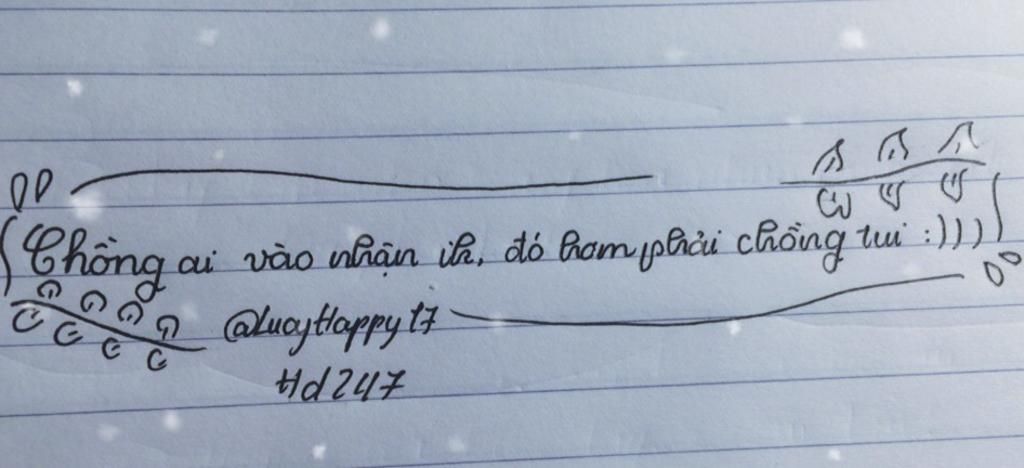 Chồng ai vào nhận ik, đó hom phải chồng tui :))))
@LucyHappy17
Hd247